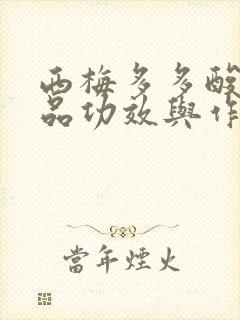 西梅多多酸
品功效與作
當年煙火